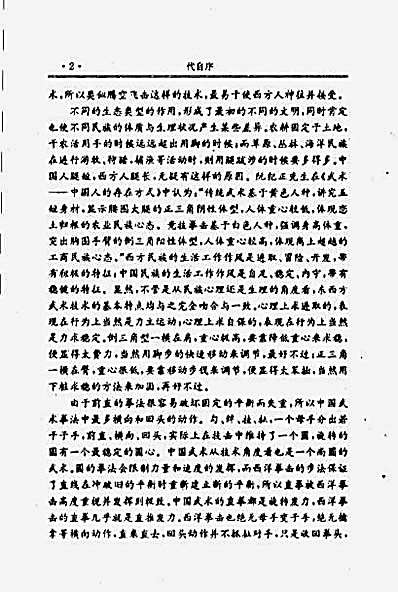 ·2· 代自序
术,所以类似腾空飞击这样的技术,最易于使西方人神往并接受。
不同的生态类型的作用,形成了最初的不同的文明,同时肯定
也使不同民族的体质与生理状况产生某些差异。农耕固定于土地,
干农活用手的时候远远超出用脚的时候;而草原、丛林、海洋民族
在进行游牧、狩猎、捕渔等活动时,则用腿跋涉的时候要多得多。中
国人腿短,西方人腿长,无疑有这样的原因。阮纪正先生在《武术
——中国人的存在方式》中认为:“传统武术基于黄色人种,讲究五
短身材,显示腰圆大腿的正三角阴性体型,人体重心较低,体现恋
土归根的农业民族心态。竞技拳击基于白色人种,强调身高体重,
突出胸围手臂的倒三角阳性体型,人体重心较高,体现离土超越的
工商民族心态。”西方民族的生活工作作风是进取、冒险、开发,带
有积极的特征;中国民族的生活工作作风是自足、稳定、内守,带有
稳健的特征。显然,不管是从民族心理还是生理的角度看,东西方
武术技术的基本特点均与之完全吻合与一致。心理上求进取的,表
现在行为上当然是力主运动;心理上求自保的,表现在行为上当然
是力求稳定。倒三角型一横在肩,重心极高,要靠降低重心来求稳,
便显得太费力,当然用脚步的快速移动来调节,最好不过;正三角
一横在臀,重心很低,要靠移动步伐来调节,便显得太笨拙,当然用
下桩求稳的方法来加固,再好不过。
由于前直的拳法很容易破坏固定的平衡而失重,所以中国武
术拳法中最多横向和回头的动作。勾、
千子手,前直、横向、回头,实际上在技击中维持了一个圆,旋转的
圆有一个最稳定的圆心。中国武术从技术角度看也是一个而圆的
武术。圆的拳法会限制力量和速度的发挥,而西洋拳击的步法保证
了直线在冲破旧的平衡时重新建立新的平衡,所以直拳被西洋拳
击高度重视并发挥到极致。中国武术的直拳都是旋转发力,西洋拳
击的直拳几乎就是直推发力。西洋拳击也绝无母手变子手,绝无擒
拿等横向动作,直来直去,回头动作并不抓扯对手,只是收回拳头,